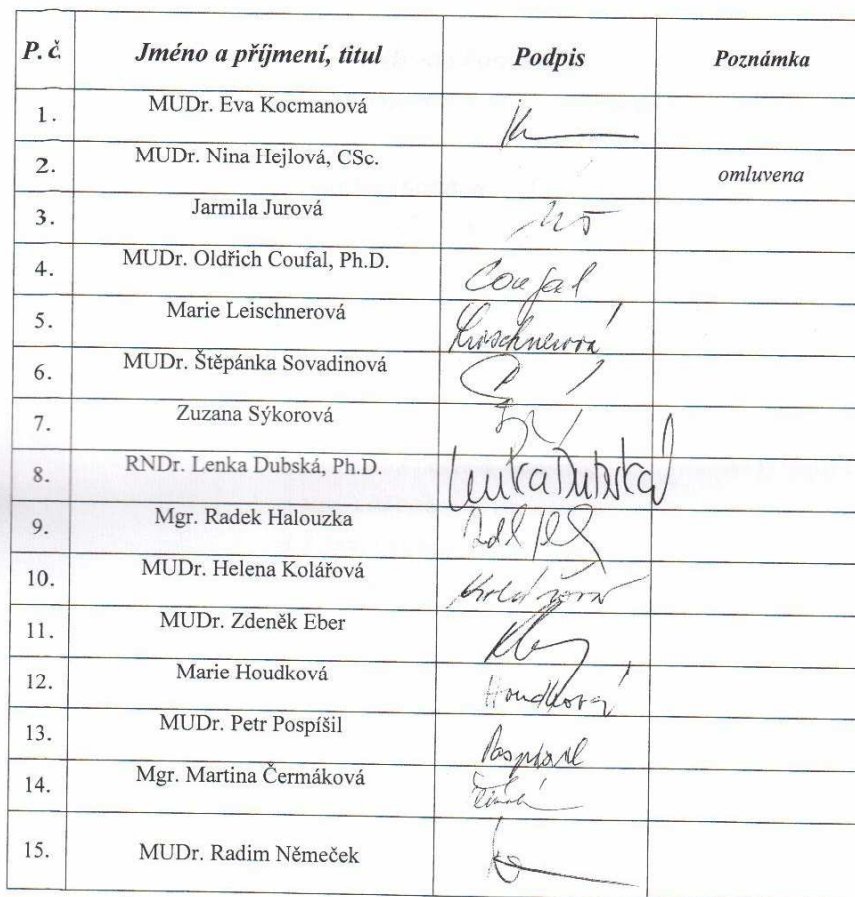 P. č Jméno a příjmení, titul Podpis Poznámka
1. MUDr. Eva Kocmanová
2. MUDr. Nina Hejlová, CSc. omluvena
3. Jarmila Jurová
4. MUDr. Oldřich Coufal, Ph.D. Coufal
5. Marie Leischnerová Leischnerová
6. MUDr. Štěpánka Sovadinová
7. Zuzana Sýkorová
8. RNDr. Lenka Dubská, Ph.D. Lenka Dubská
9. Mgr. Radek Halouzka
10. MUDr. Helena Kolářová Kolářová
11. MUDr. Zdeněk Eber
12. Marie Houdková Houdková
13. MUDr. Petr Pospíšil Pospíšil
14. Mgr. Martina Čermáková
15. MUDr. Radim Němeček